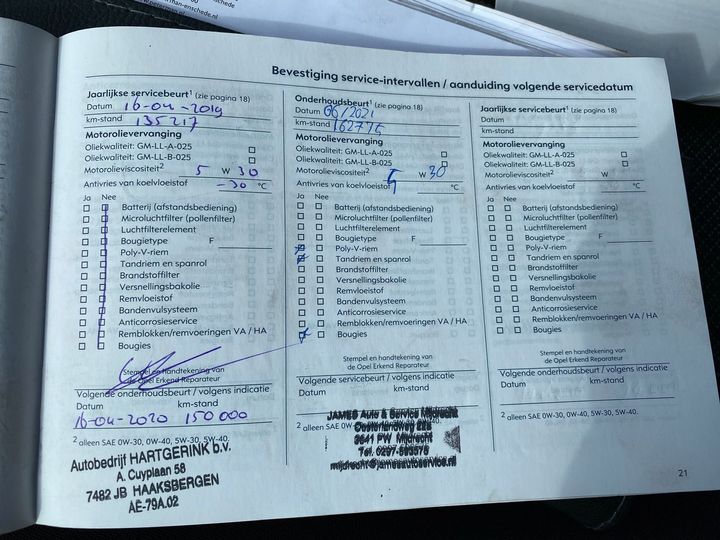 Bevestiging service-intervallen / aanduiding volgende servicedatum
Jaarlijkse servicebeurt¹ (zie pagina 18)
Datum 16-04-2019
km-stand 135217
Motorolievervanging
Oliekwaliteit: GM-LL-A-025
Oliekwaliteit: GM-LL-B-025
Motorolieviscositeit² 5 W 30
Antivries van koelvloeistof -30 °C
Ja Nee
Batterij (afstandsbediening)
Microluchtfilter (pollenfilter)
Luchtfilterelement
Bougietype F
Poly-V-riem
Tandriem en spanrol
Brandstoffilter
Versnellingsbakolie
Remvloeistof
Bandenvulsysteem
Anticorrosieservice
Remblokken/remvoeringen VA / HA
Bougies
Stempel en handtekening van
de Opel Erkend Reparateur
Volgende onderhoudsbeurt / volgens indicatie
Datum km-stand
16-04-2020 150000
² alleen SAE 0W-30, 0W-40, 5W-30, 5W-40.
Autobedrijf HARTGERINK b.v.
A. Cuyplaan 58
7482 JB HAAKSBERGEN
AE-79A.02
Onderhoudsbeurt¹ (zie pagina 18)
Datum 06/2021
km-stand 162775
Motorolievervanging
Oliekwaliteit: GM-LL-A-025
Oliekwaliteit: GM-LL-B-025
Motorolieviscositeit² 5 W 30
Antivries van koelvloeistof °C
Ja Nee
Batterij (afstandsbediening)
Microluchtfilter (pollenfilter)
Luchtfilterelement
Bougietype F
Poly-V-riem
Tandriem en spanrol
Brandstoffilter
Versnellingsbakolie
Remvloeistof
Bandenvulsysteem
Anticorrosieservice
Remblokken/remvoeringen VA / HA
Bougies
Stempel en handtekening van
de Opel Erkend Reparateur
Volgende servicebeurt / volgens indicatie
Datum km-stand
² alleen SAE 0W-
JAMES Auto & Service Mijdrecht
3641 PW Mijdrecht
Tel. 0297-593576
mijdrecht@jamesautoservice.nl
Jaarlijkse servicebeurt¹ (zie pagina 18)
Datum
km-stand
Motorolievervanging
Oliekwaliteit: GM-LL-A-025
Oliekwaliteit: GM-LL-B-025
Motorolieviscositeit² W
Antivries van koelvloeistof °C
Ja Nee
Batterij (afstandsbediening)
Microluchtfilter (pollenfilter)
Luchtfilterelement
Bougietype F
Poly-V-riem
Tandriem en spanrol
Brandstoffilter
Versnellingsbakolie
Remvloeistof
Bandenvulsysteem
Anticorrosieservice
Remblokken/remvoeringen VA / HA
Bougies
Stempel en handtekening van
de Opel Erkend Reparateur
Volgende onderhoudsbeurt / volgens indicatie
Datum km-stand
² alleen SAE 0W-30, 0W-40, 5W-30, 5W-40.
21